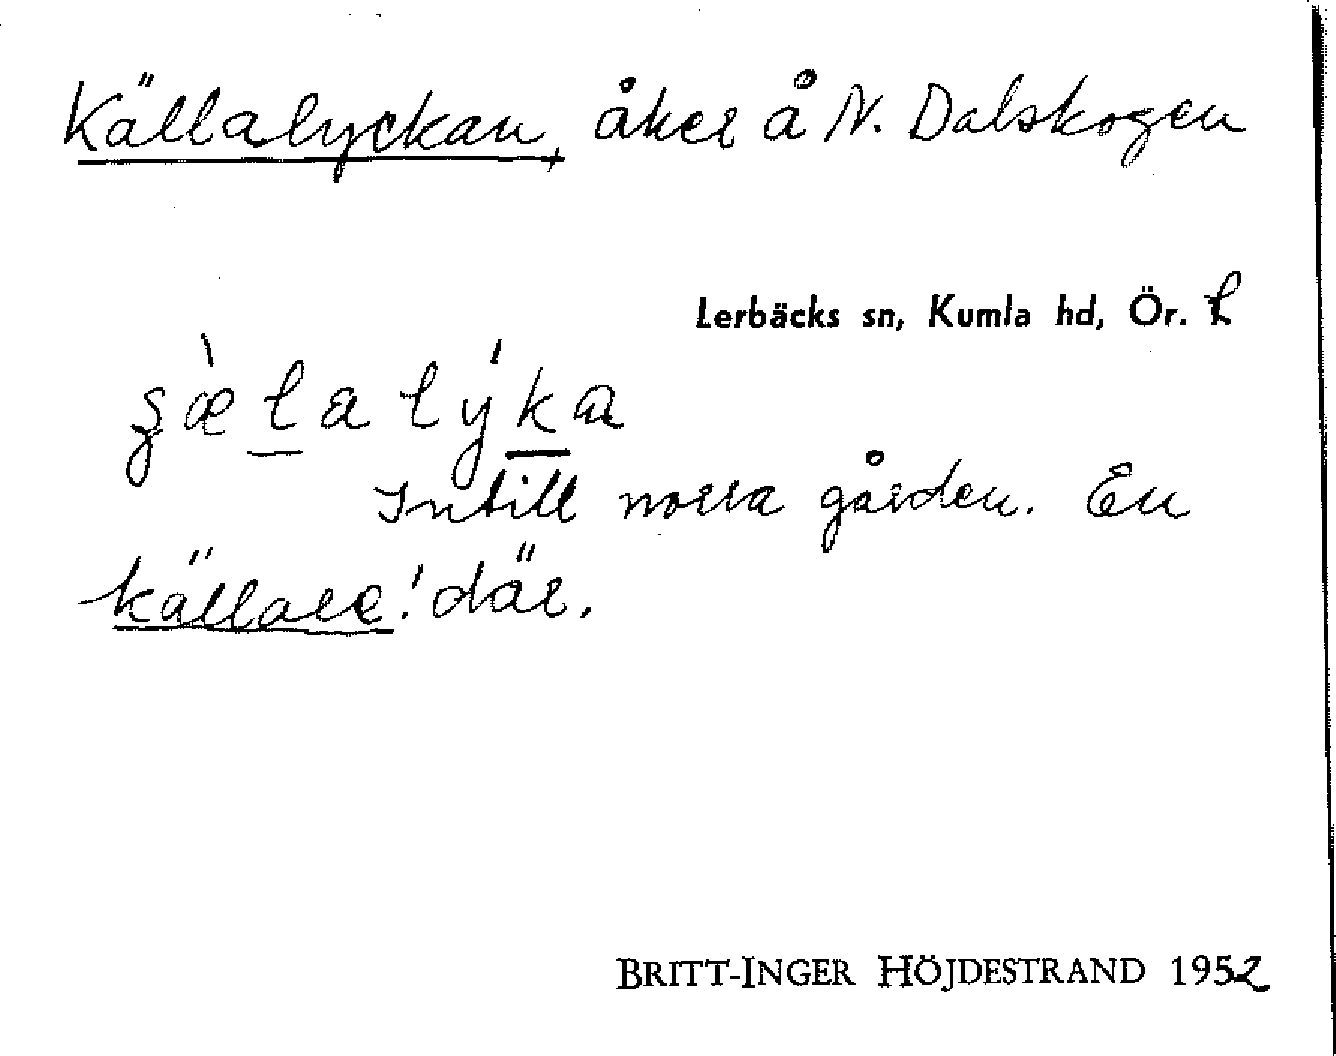 Källalyckan, åker å N. Dalskogen
Lerbäcks sn, Kumla hd, Ör. L
Intill norra gården. En
källare! där.
BRITT-INGER HÖJDESTRAND 1952